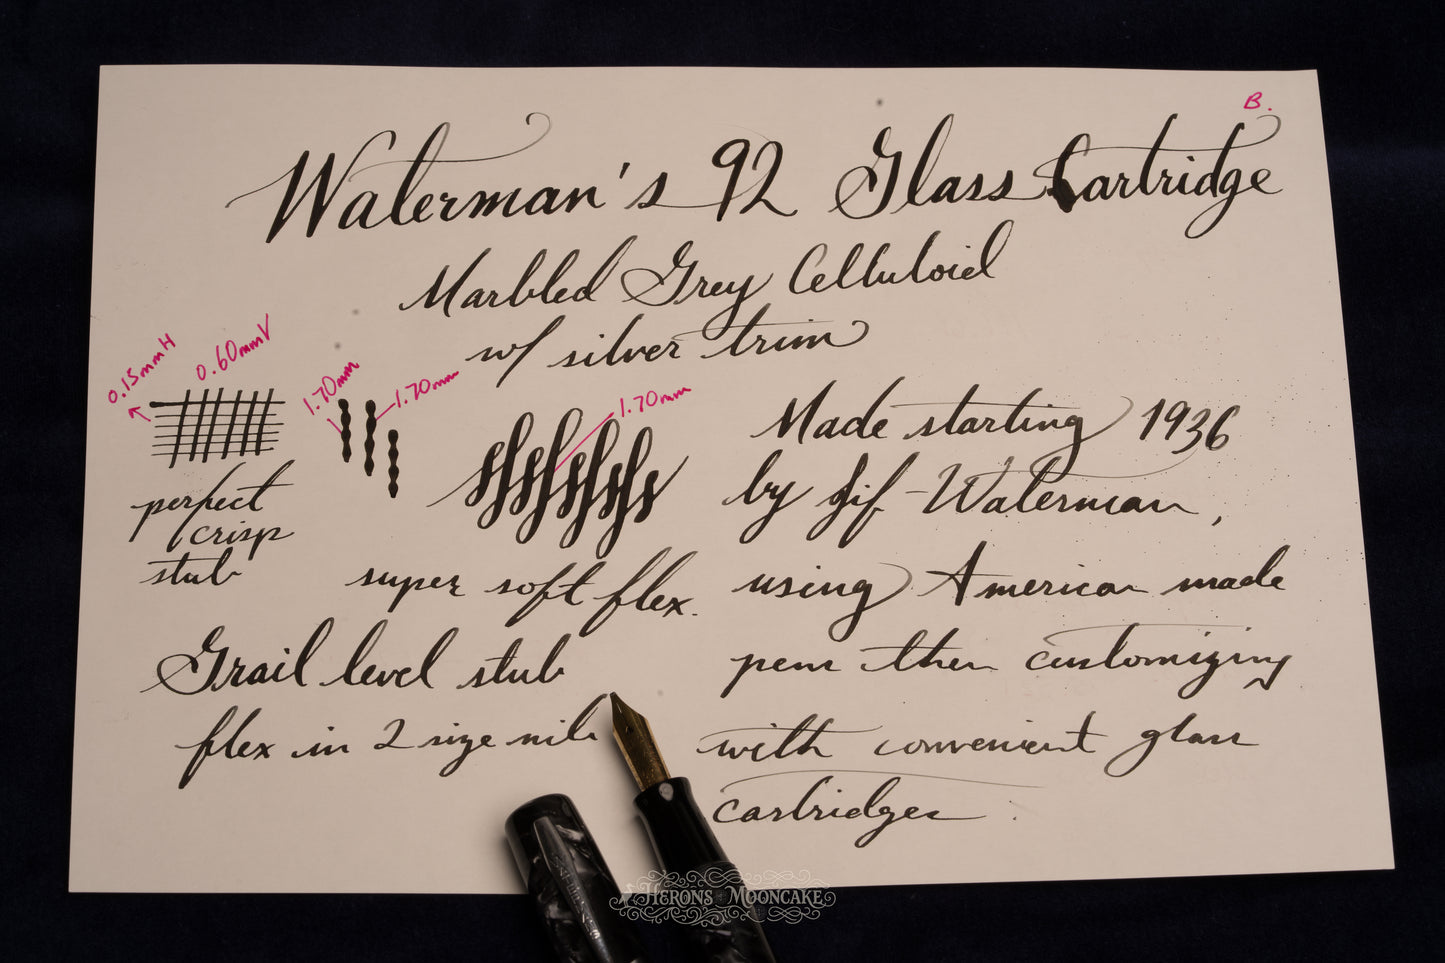 B.
Waterman's 92 Glass Cartridge
Marbled Grey Celluloid
w/ silver trim
0.15mm H
0.60mm V
1.70mm
1.70mm
1.70mm
perfect
crisp
stub
super soft flex.
Grail level stub
flex in 2 size nib
Made starting 1936
by Jif-Waterman,
using American made
pens then customizing
with convenient glass
cartridges.
HERONS MOONCAKE